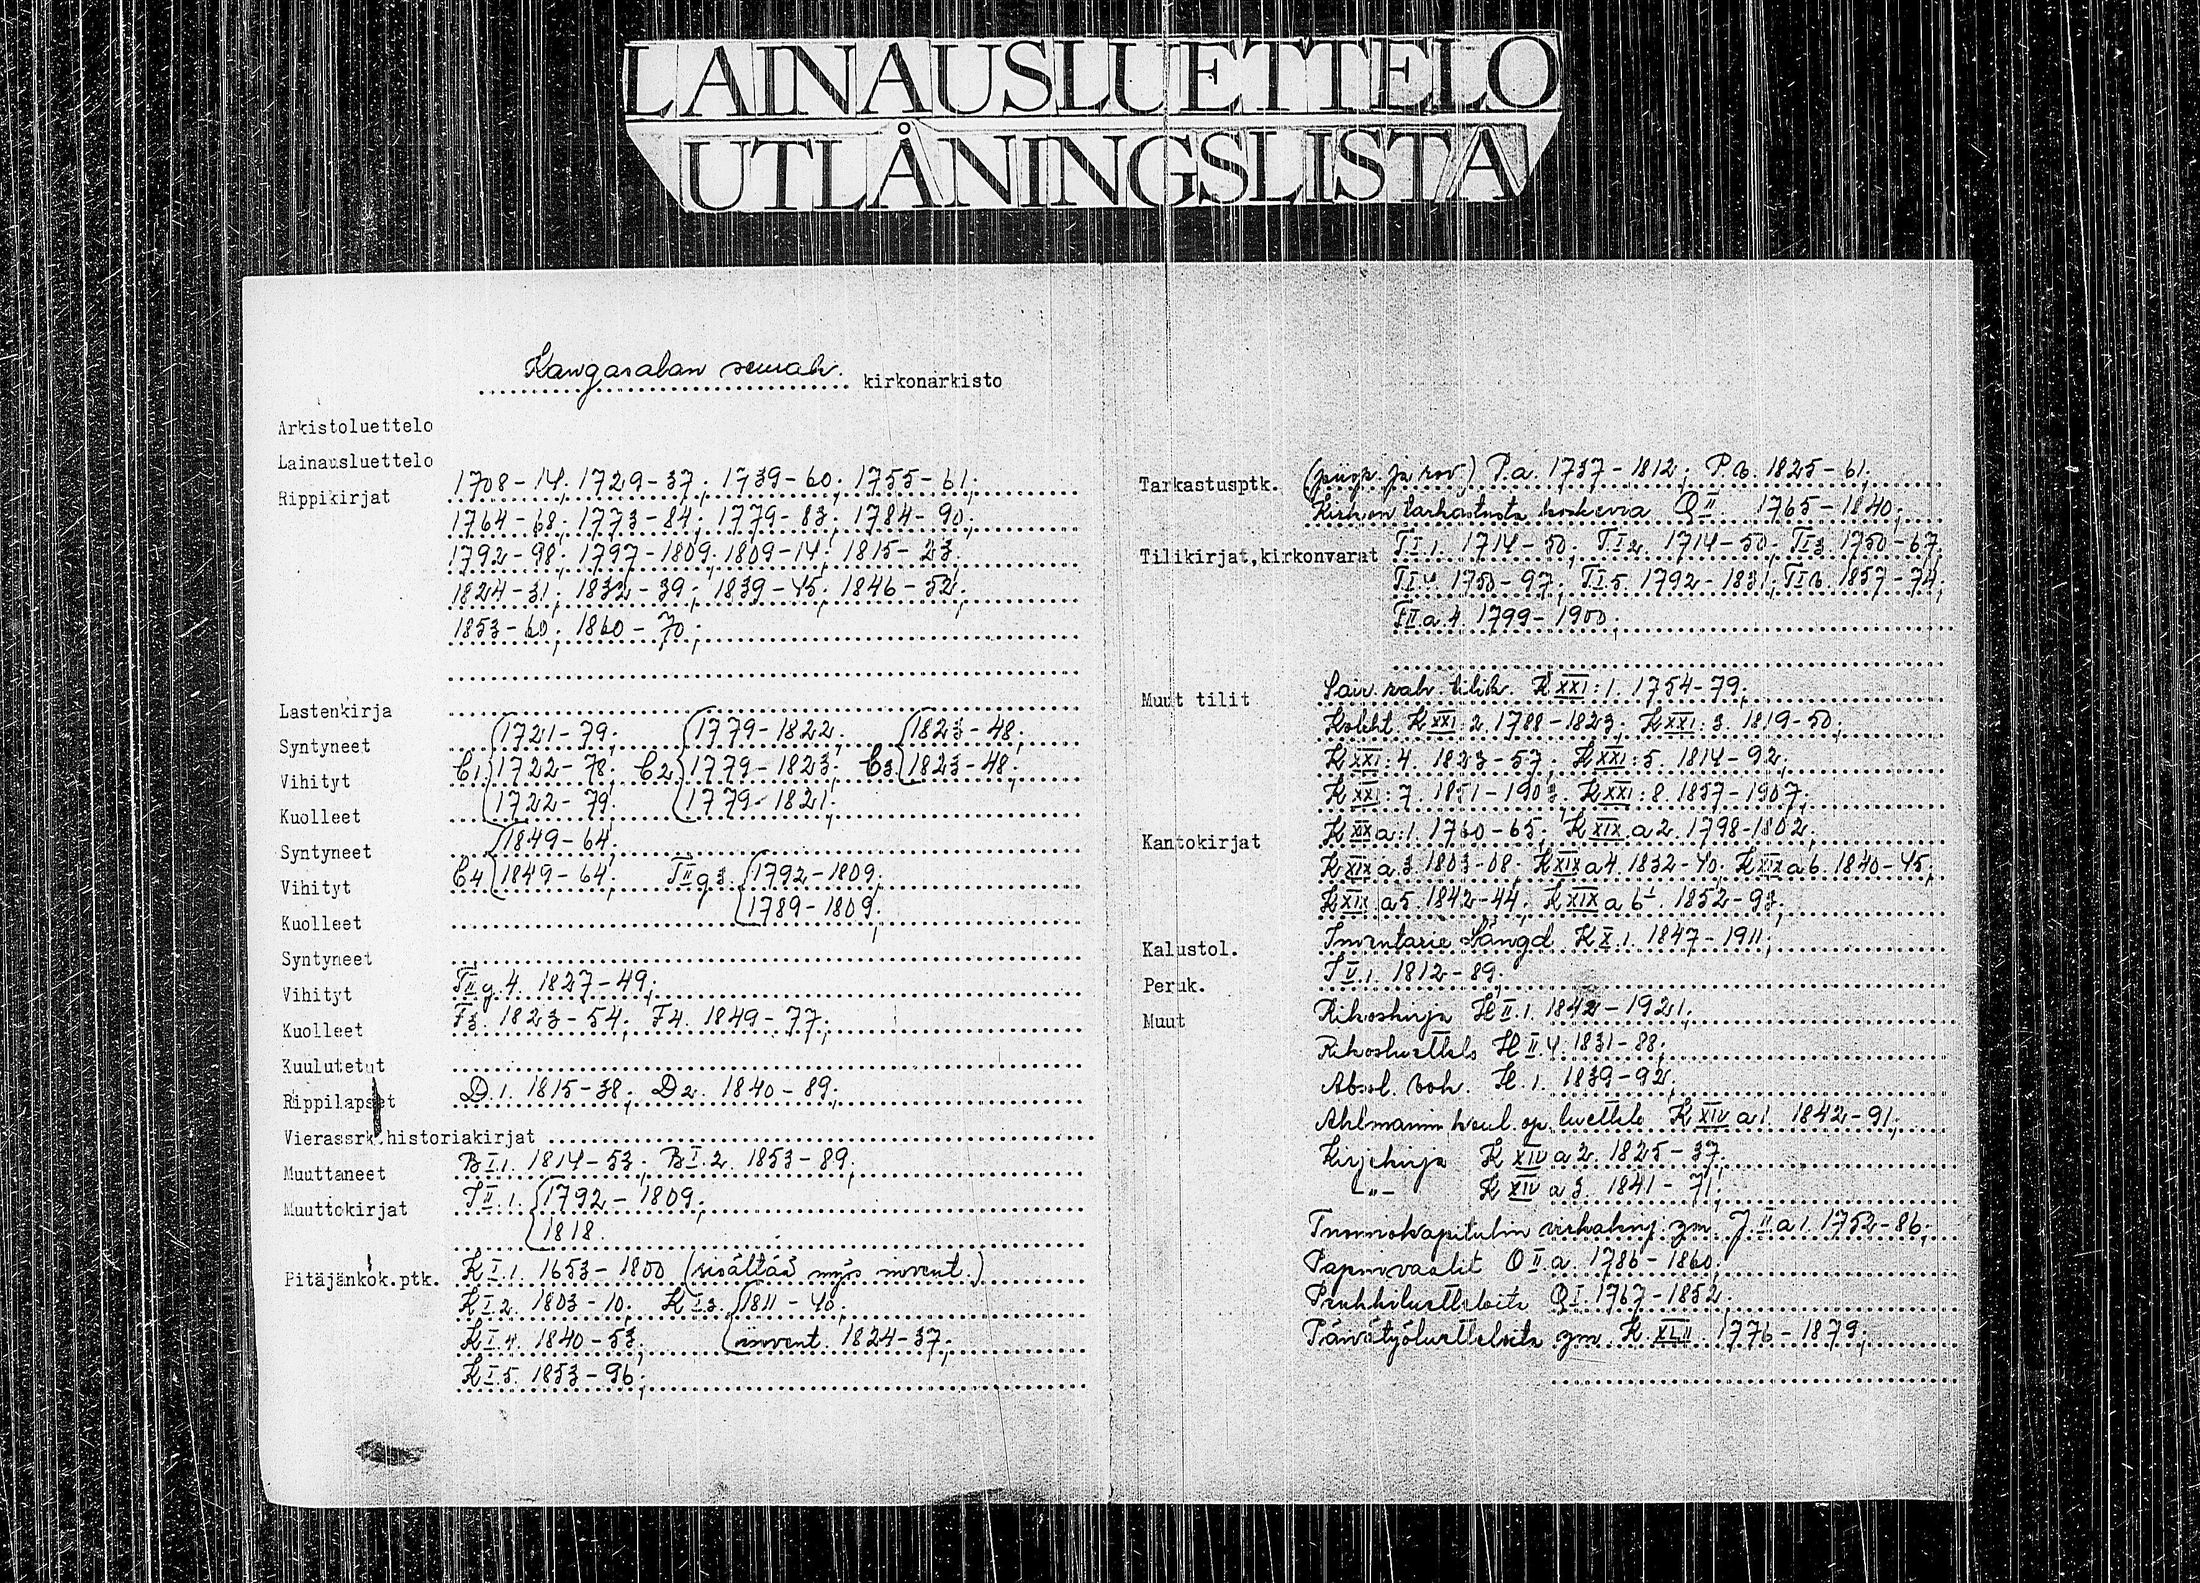 LAINAUSLUETTELO
UTLÅNINGSLISTA
Kangasalan seurak. kirkonarkisto
Arkistoluettelo
Lainausluettelo
Rippikirjat 1708-14; 1729-37; 1739-60; 1755-61;
1764-68; 1773-84; 1779-83; 1784-90;
1792-98; 1797-1809; 1809-14; 1815-23;
1824-31; 1832-39; 1839-45; 1846-52;
1853-60; 1860-70;
Lastenkirja
Syntyneet 1721-79; 1779-1822; 1823-48;
Vihityt C1. 1722-78; C2. 1779-1823; C3. 1823-48;
Kuolleet 1722-79; 1779-1821;
Syntyneet 1849-64;
Vihityt C4 1849-64; TII g3. 1792-1809;
Kuolleet 1789-1809;
Syntyneet
Vihityt TII g.4. 1827-49;
Kuolleet F3. 1823-54; F4. 1849-77;
Kuulutetut
Rippilapset D.1. 1815-38; D2. 1840-89;
Vierassrk.historiakirjat
Muuttaneet BI.1. 1814-53; BI.2. 1853-89;
Muuttokirjat II.1. 1792-1809;
1818.
Pitäjänkok.ptk. KI.1. 1653-1800 (sisältää myös invent.)
KI.2. 1803-10; KI.3. 1811-40;
KI.4. 1840-53; invent. 1824-37;
KI.5. 1853-96;
Tarkastusptk. (piisp. ja rov.) P.a. 1737-1812; P.b. 1825-61;
Kirkon tarkastusta koskevia QII. 1765-1840;
Tilikirjat,kirkonvarat TI1. 1714-50; TI2. 1714-50; TI3. 1750-67;
TI4. 1750-97; TI.5. 1792-1831; TIb. 1857-74;
TII.a.4. 1799-1900;
Muut tilit Sair. rah. tilik. KXXI:1. 1754-79;
Kolekt. KXXI:2. 1788-1823; KXXI:3. 1819-50;
KXXI:4. 1823-57; KXXI:5. 1814-92;
KXXI:7. 1851-1903; KXXI:8. 1857-1907;
Kantokirjat KXIXa:1. 1760-65; KXIX.a2. 1798-1802;
KXIX a.3. 1803-08; KXIX a4. 1832-40; KXIX a6. 1840-45;
KXIX.a5. 1842-44; KXIX a 6¹. 1852-93;
Kalustol. Inventarie Längd KX.1. 1847-1911;
Peruk. IV.1. 1812-89;
Muut Rikoskirja HII.1. 1842-1921;
Rikosluettelo HII.4. 1831-88;
Absol. bok. H.1. 1839-92;
Ahlmannin koul. op. luettelo KXIV a1. 1842-91;
Kirjekirja KXIV a2. 1825-37;
-"- KXIV a3. 1841-71;
Tuomiokapitulin virkakirj. ym. J.II a1. 1752-86;
Papinvaalit OII a. 1786-1860;
Penkkiluetteloita QI. 1767-1852;
Päivätyöluetteloita ym. K.XLII. 1776-1879;